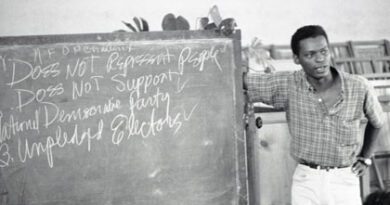 Does Not Represent People
Does Not Support ✓
National Democratic Party
3. Unpledged Electors ✓